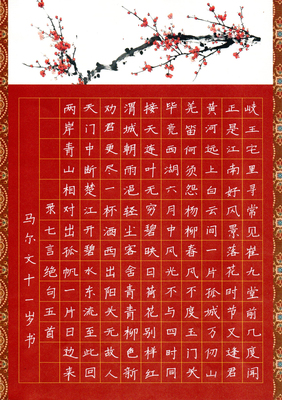 岐王宅里寻常见崔九堂前几度闻
正是江南好风景落花时节又逢君
黄河远上白云间一片孤城万仞山
羌笛何须怨杨柳春风不度玉门关
毕竟西湖六月中风光不与四时同
接天莲叶无穷碧映日荷花别样红
渭城朝雨浥轻尘客舍青青柳色新
劝君更尽一杯酒西出阳关无故人
天门中断楚江开碧水东流至此回
两岸青山相对出孤帆一片日边来
录七言绝句五首
马尔文十一岁书